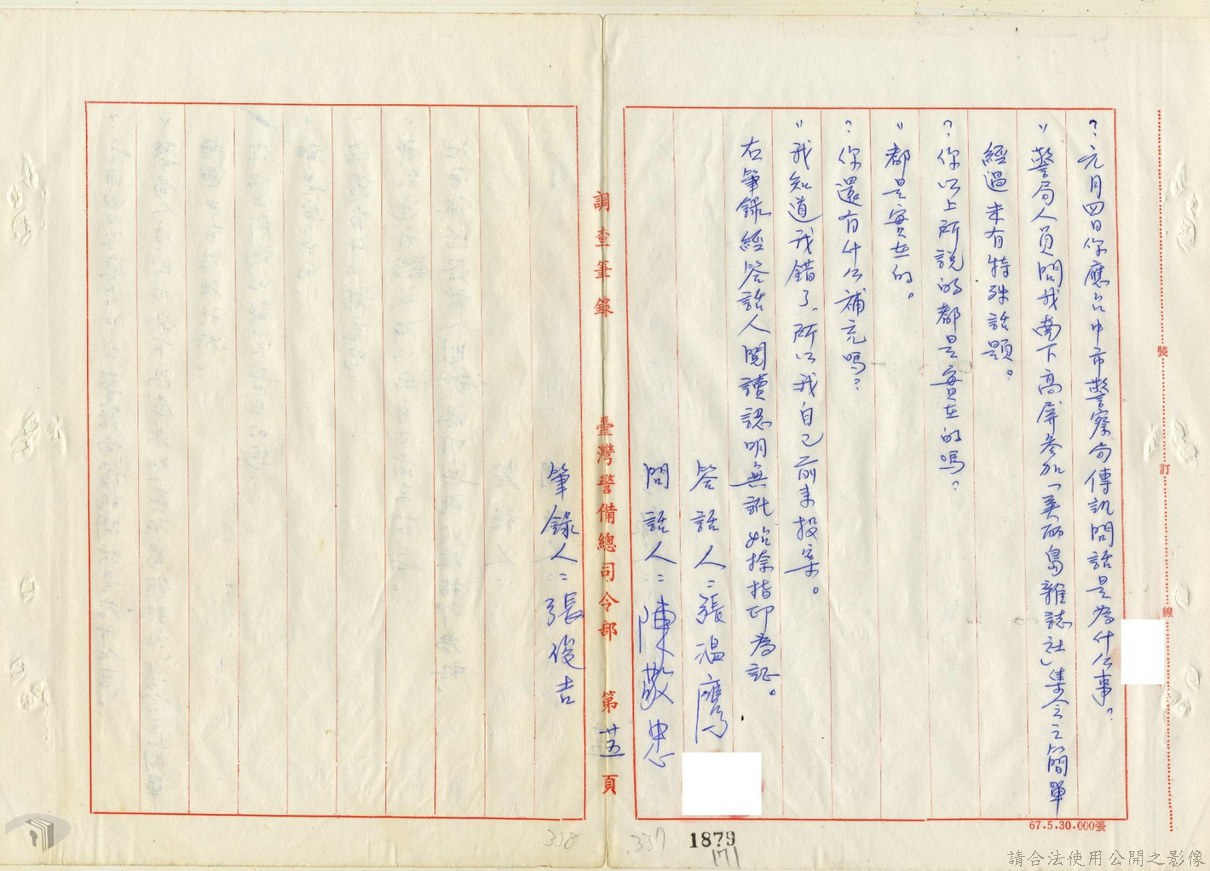 ？元月四日你應台中市警察局傳訊問話是為什么事？
〃警局人員問我南下高屏參加「美丽島雜誌社」集会之簡單
經過未有特殊話題。
？你以上所說的都是實在的嗎？
〃都是實在的。
？你還有什么補充嗎？
〃我知道我錯了，所以我自己前来投案。
右筆錄經答話人閱讀認明無訛始捺指印為証。
答話人：張溫鷹
問話人：陳敬忠
筆錄人：張俊吉
調查筆錄 臺灣警備總司令部 第廿五頁
裝 訂 線
67.5.30.000張
1879
171
337
338
請合法使用公開之影像